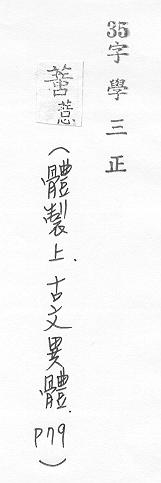 35字學三正
薏
(體製上.古文異體.P79)